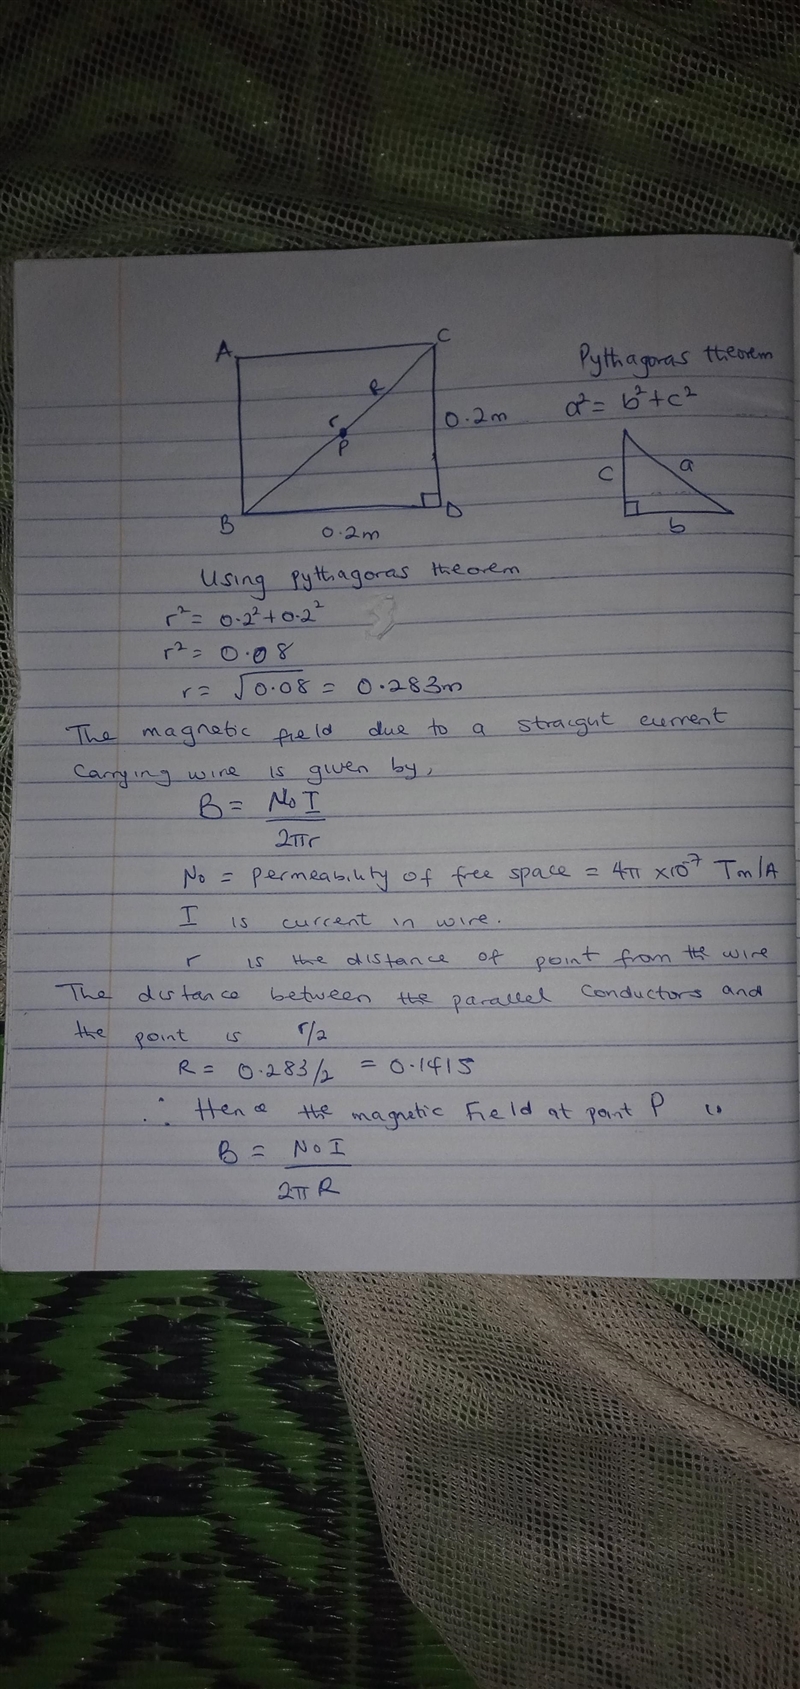 A
C
Pythagoras theorem
R
a² = b² + c²
0.2m
r
P
c
a
B
D
b
0.2m
Using pythagoras theorem
r² = 0.2² + 0.2²
r² = 0.08
r = √0.08 = 0.283m
The magnetic field due to a straigut current
Carrying wire is given by,
B = NoI
2πr
No = Permeability of free space = 4π ×10⁻⁷ Tm/A
I is current in wire.
r is the distance of point from the wire
The distance between the parallel Conductors and
the point is r/2
R = 0.283/2 = 0.1415
∴ Hence the magnetic Field at point P is
B = NoI
2πR